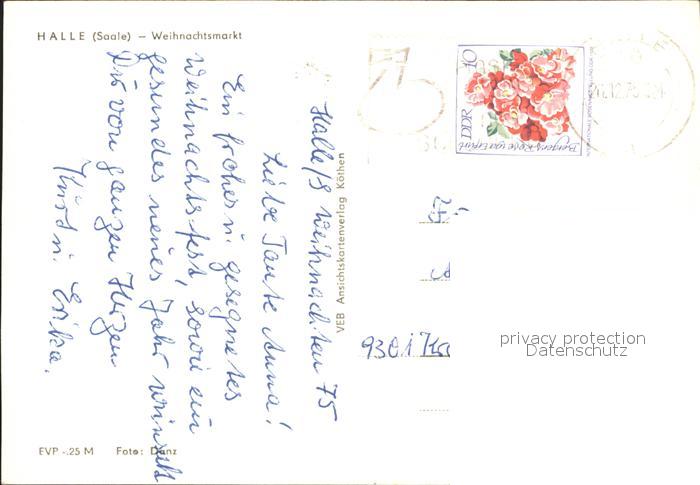 HALLE (Saale) – Weihnachtsmarkt
Halle/S Weihnachten 75
Liebe Tante Anna!
Ein frohes u. gesegnetes
Weihnachtsfest, sowie ein
gesundes neues Jahr wünscht
Dir von ganzen Herzen
Kurt u. Erika.
VEB Ansichtskartenverlag Köthen
EVP -.25 M Foto: Danz
10
DDR
Bergers Rose
Erfurt
12.75
9301
privacy protection
Datenschutz